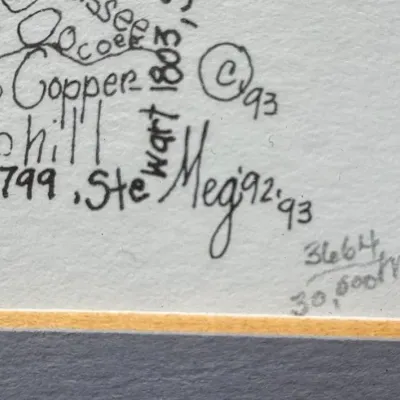 ssee
Ocoee
Copper-
hill
799, Stewart 1803,
© 93
Meg '92 '93
3664
30,000